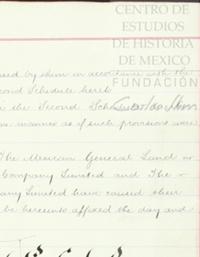 CENTRO DE
ESTUDIOS
DE HISTORIA
DE MEXICO
FUNDACIÓN
used by them in accordance with the
Second Schedule hereto
in the Second Schedule
manner as if such provisions were
The Mexican General Land &
Company Limited and The
any Limited have caused their
be hereunto affixed the day and